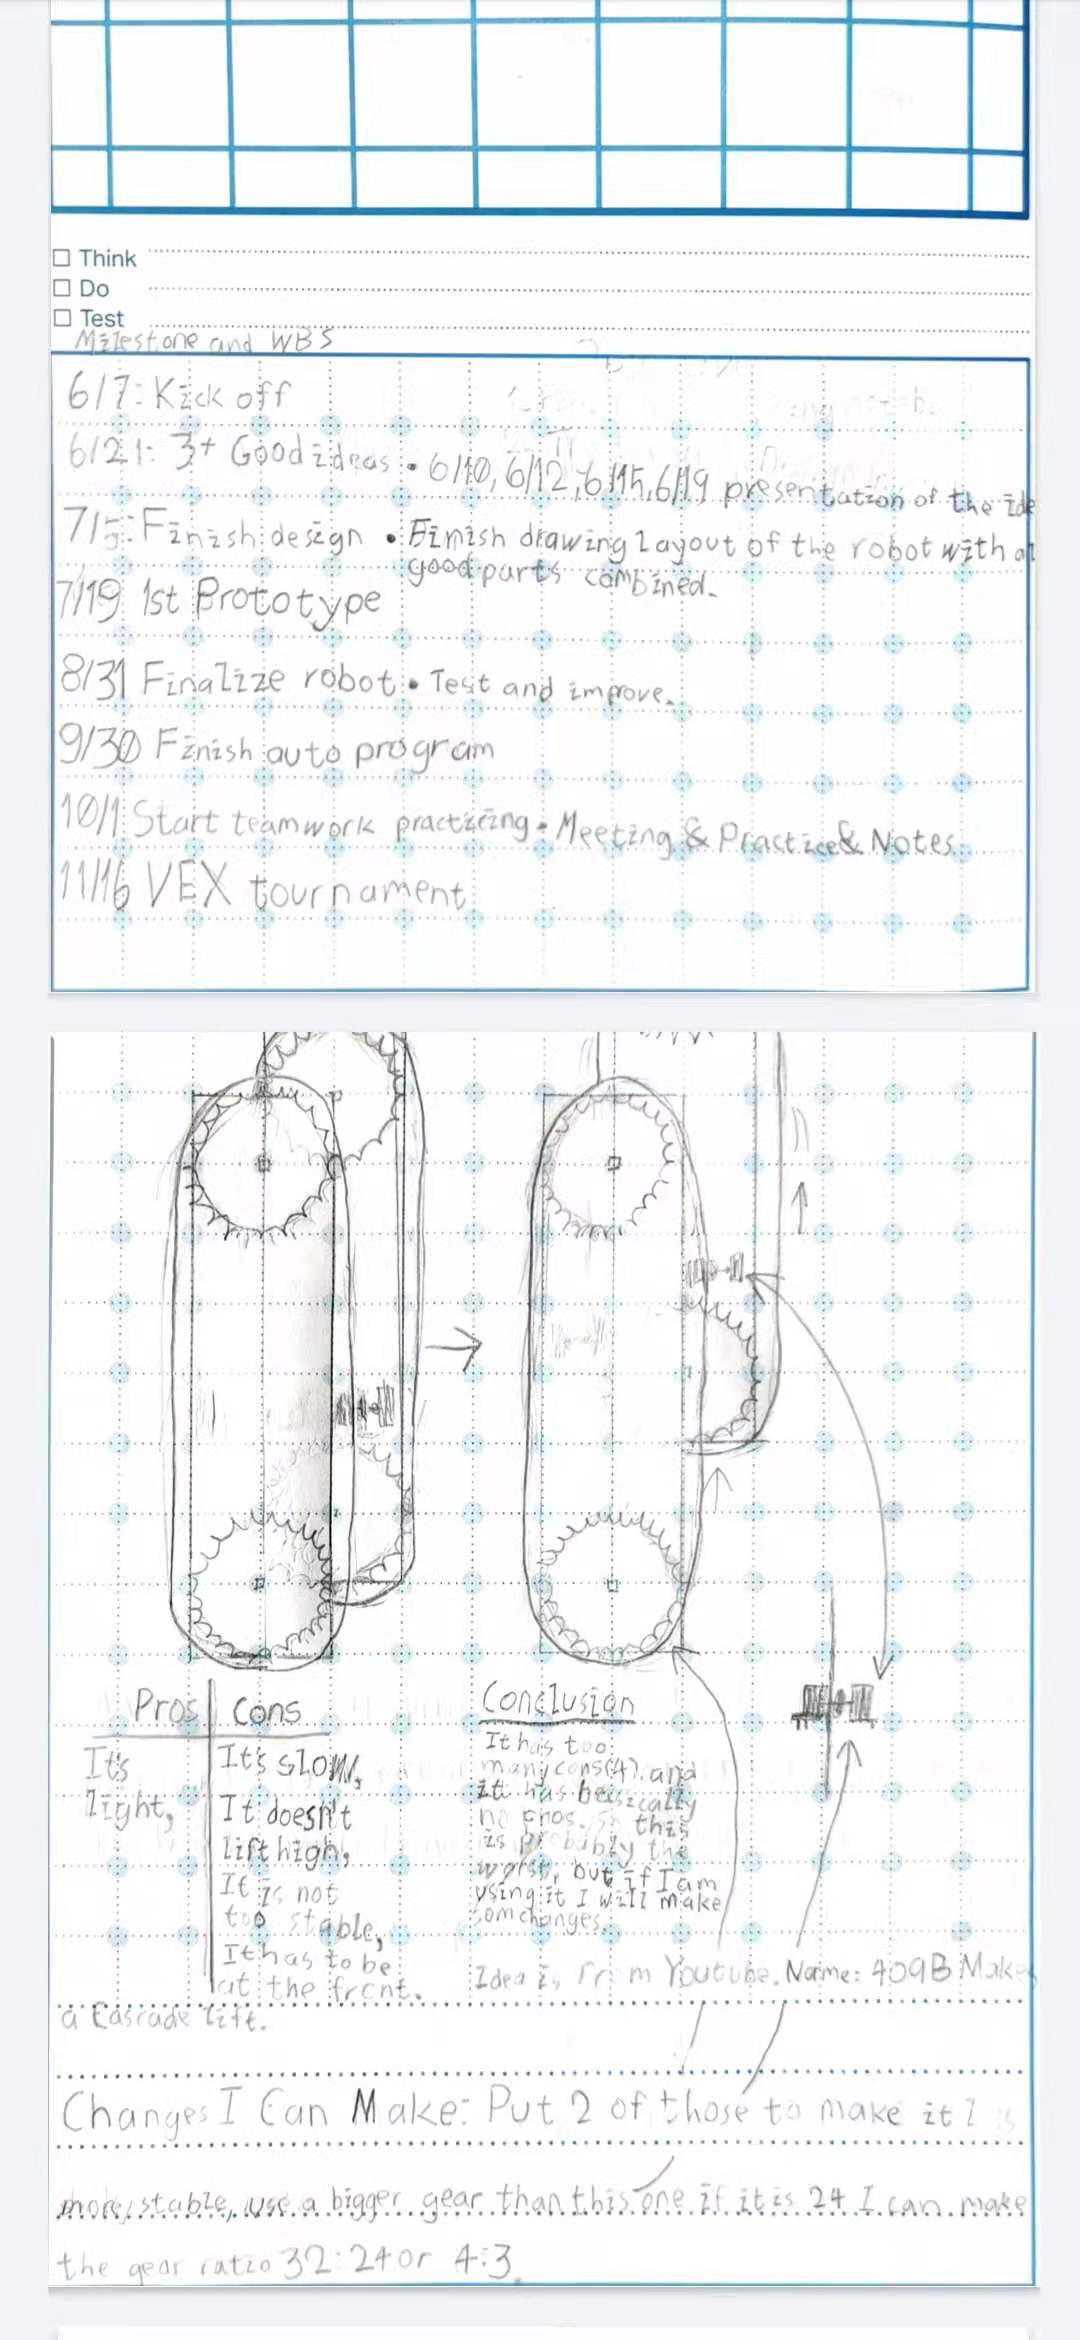 Think
Do
Test
Milestone and WBS
6/7: Kick off
6/21: 3+ Good ideas • 6/10, 6/12, 6/15, 6/19 presentation of the ide
7/5: Finish design • Finish drawing layout of the robot with al
good parts combined.
7/19 1st Prototype
8/31 Finalize robot • Test and improve.
9/30 Finish auto program
10/1: Start teamwork practicing • Meeting & Practice & Notes
11/16 VEX tournament
Pros
It's
light,
Cons
It's slow,
It doesn't
lift high,
It is not
too stable,
It has to be
at the front.
Conclusion
It has too
many cons(4), and
it has besically
no pros. so this
is probably the
worst, but if I am
using it I will make
som changes.
Idea is From Youtube. Name: 409B Makes
a Cascade lift.
Changes I Can Make: Put 2 of those to make it
more stable, use a bigger gear than this one if it is 24 I can make
the gear ratio 32:24 or 4:3.